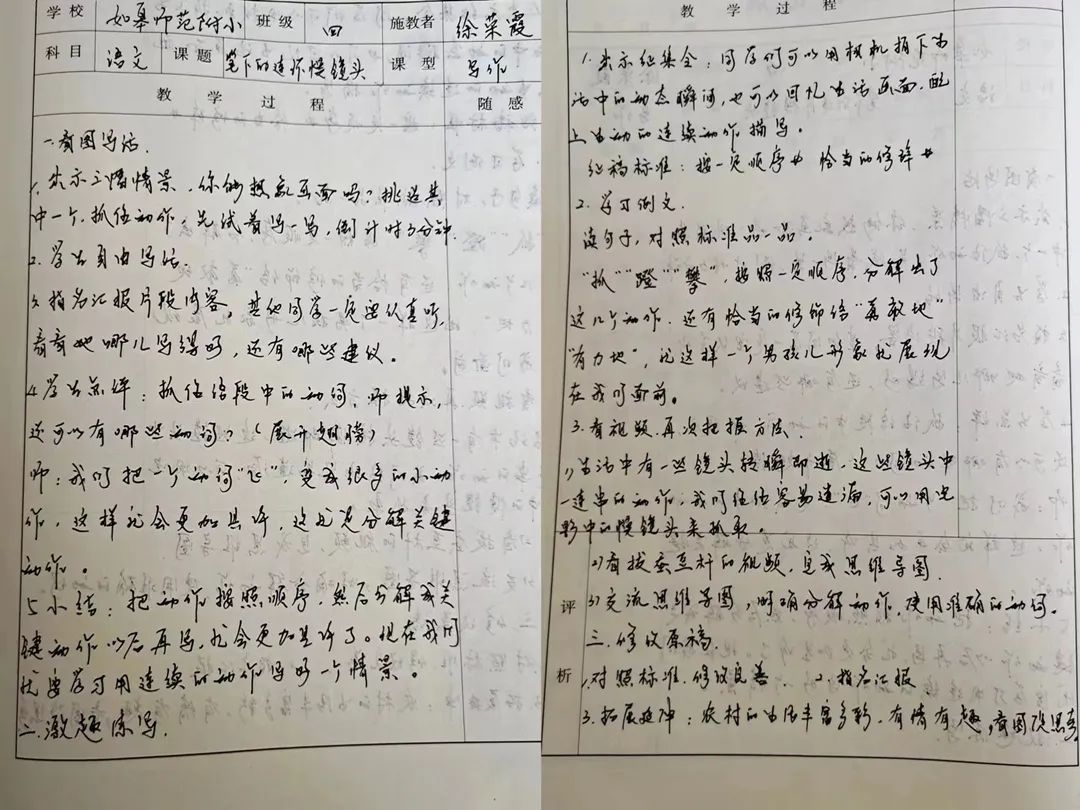 学校 如皋师范附小 班级 四 施教者 徐荣霞
科目 语文 课题 笔下的连环慢镜头 课型 写作
教学过程 随感
一.看图写话.
1. 出示三幅情景,你能想象画面吗?挑选其
中一个,抓住动作,先试着写一写,倒计时5分钟.
2. 学生自由写话.
3. 指名汇报片段内容。其他同学一定要认真听,
看看她哪儿写得好,还有哪些建议。
4. 学生点评:抓住语段中的动词,师提示,
还可以有哪些动词?(展开翅膀)
师:我们把一个动词“飞”,变成很多的小动
作,这样就会更加具体,这就是分解关键
动作。
5. 小结:把动作按照顺序,然后分解成关
键动作以后再写,就会更加具体了。现在我们
就要学习用连续的动作写好一个情景。
二.激趣练写.
教学过程
1. 出示征集令:同学们可以用相机拍下生
活中的动态瞬间,也可以回忆生活画面,配
上生动的连续动作描写。
征稿标准:按一定顺序 恰当的修辞
2. 学习例文.
读句子,对照标准品一品.
“抓”“蹬”“攀”,按照一定顺序,分解出了
这几个动作.还有恰当的修饰语“勇敢地”
“有力地”,就这样一个男孩儿形象就展现
在我们面前。
3. 看视频,再次把握方法.
1) 生活中有一些镜头转瞬即逝,这些镜头中
一连串的动作,我们往往容易遗漏,可以用电
影中的慢镜头来抓取。
2) 看拔蚕豆杆的视频,完成思维导图.
评 3) 交流思维导图,明确分解动作,使用准确的动词.
三.修改原稿.
析 1. 对照标准,修改完善. 2. 指名汇报
3. 拓展延伸:农村的生活丰富多彩,有情有趣,看图说思考.